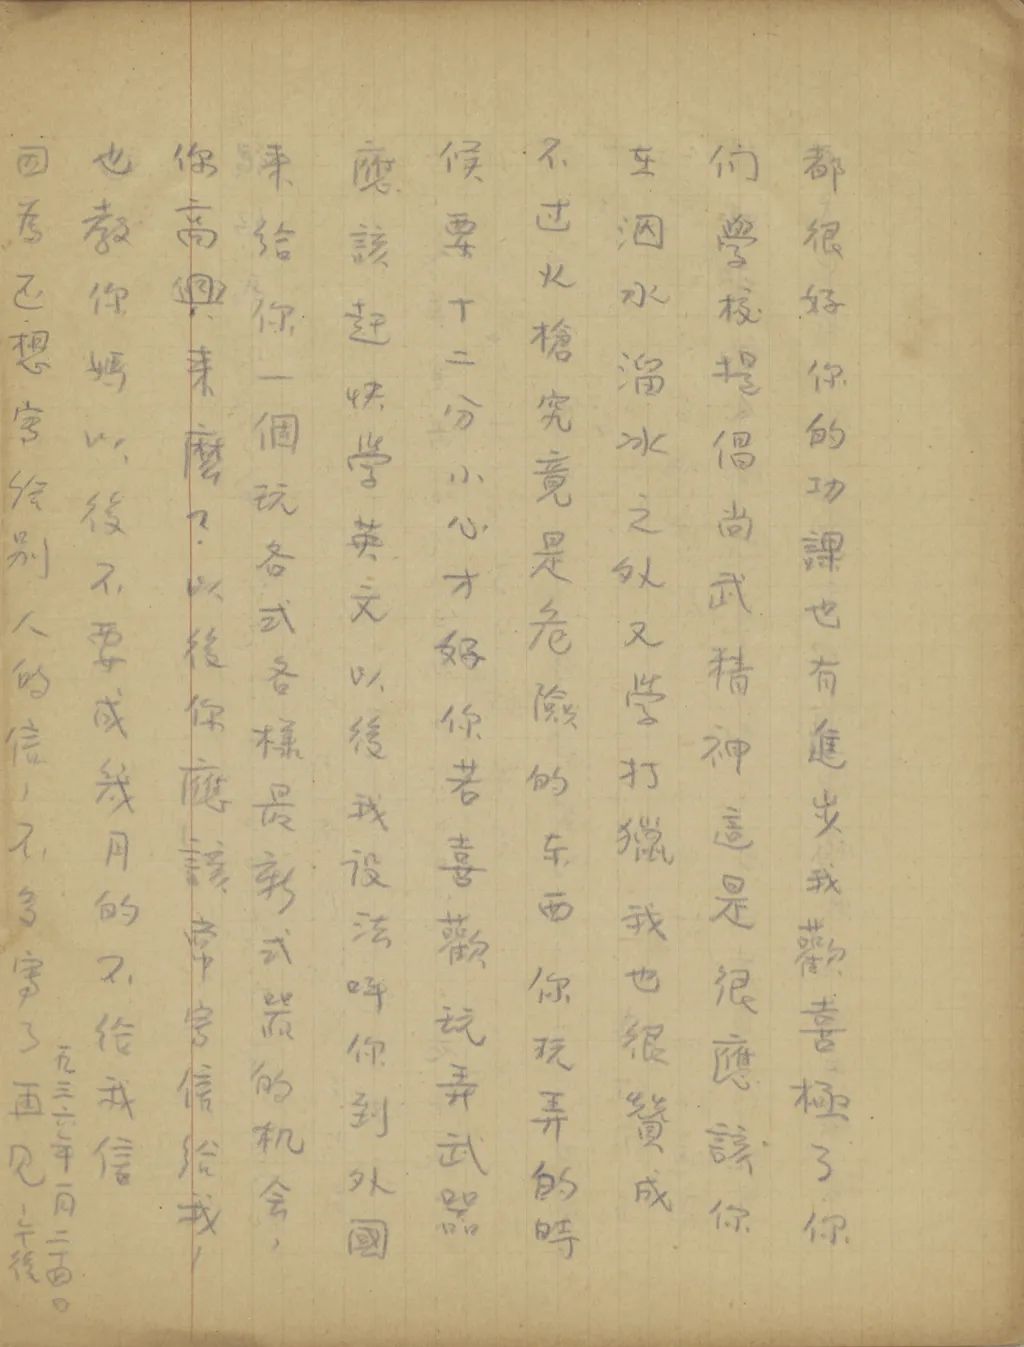 都很好你的功課也有進步我歡喜極了你
们學校提倡尚武精神這是很應該你
在泅水溜冰之外又學打獵我也很贊成
不过火槍究竟是危險的东西你玩弄的時
候要十二分小心才好你若喜歡玩弄武器
應該赶快學英文以後我设法呌你到外國
来给你一個玩各式各樣最新式器的机会，
你高興来麼？以後你應該常寫信给我，
也教你媽以後不要成幾月的不给我信
因為还想寫给别人的信，不多寫了再见，午後
一九三六年一月二十四日